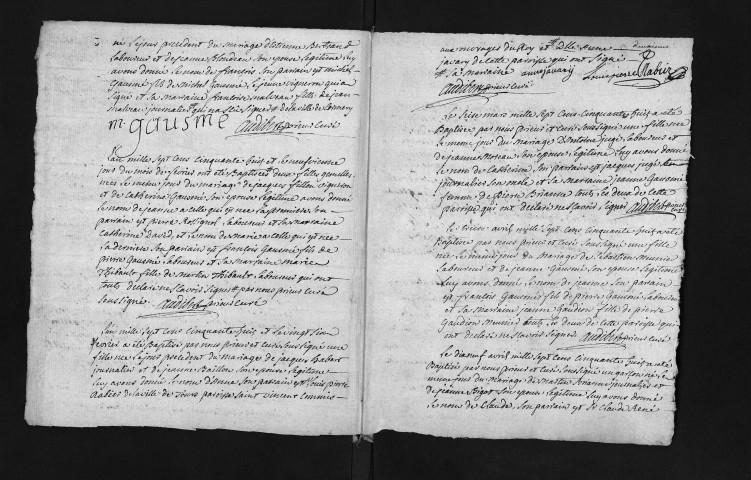 né le jour precedent du mariage d'Estienne Bertrand
laboureur et de jeanne blondeau son epouse legitime luy
avons donné le nom de françois son parain est michel
Gausme fils de michel Gausme le jeune vigneron qui a
signé et sa maraine françoise malveau fille de jean
malveau journalier qui na sceu signer de la ville de
m. gausme audibert prieur curé
L'an mille sept cens cinquante huit et le neufvieme
jour du mois de fevrier ont eté Baptisées deux filles gemelles
nées le meme jour du mariage de jacques fillon vigneron
et de Catherine Gausmé son epouse legitime avons donné
le nom de jeanne a celle qui est née la premiere son
parain est pierre Rossignol laboureur et sa maraine
Catherine David, et le nom de marie a celle qui est née
la derniere son parain est françois Gausmé fils de
pierre Gausmé laboureur et sa maraine marie
Thibault fille de martin Thibault laboureur qui ont
touts declaré ne sçavoir signer par nous prieur curé
soussigné audibert prieur curé
L'an mille sept cens cinquante huit et le vingt six
fevrier a eté Baptisé par nous prieur et curé soussigné une
fille née le jour precedent du mariage de jacques habert
journalier et de jeanne Baillou son epouse legitime
luy avons donné le nom d'anne son parain est Louis pierre
Rabier de la ville de Tours paroisse saint vincent commis
aux ouvrages du Roy et Dlle anne
javary de cette paroisse qui ont signé
sa maraine anne javary Louis pierre Rabier
audibert prieur curé
Le seize mars mille sept cens cinquante huit a eté
Baptisée par nous prieur et curé soussigné une fille née
le meme jour du mariage d'antoine jugé laboureur et
de jeanne moreau son epouse legitime luy avons donné le
nom de Catherine son parain est jacques jugé
journalier son oncle et sa maraine jeanne Gausmé
femme de pierre Brianne touts les deux de cette
paroisse qui ont declaré ne sçavoir signer audibert prieur curé
Le trois avril mille sept cens cinquante huit a eté
Baptisée par nous prieur et curé soussigné une fille
née le meme jour du mariage de sebastien meunier
laboureur et de jeanne Gausmé son epouse legitime
luy avons donné le nom de jeanne son parain
est françois Gausmé fils de pierre Gausmé laboureur
et sa maraine jeanne Gaudion fille de pierre
Gaudion meunier touts les deux de cette paroisse qui
ont declaré ne sçavoir signer audibert prieur curé
Le dixneuf avril mille sept cens cinquante huit a eté
Baptisé par nous prieur et curé soussigné un garson né le
meme jour du mariage de martin brianne journalier et
de jeanne Rigot son epouse legitime luy avons donné
le nom de Claude, son parain est Sr Claude René